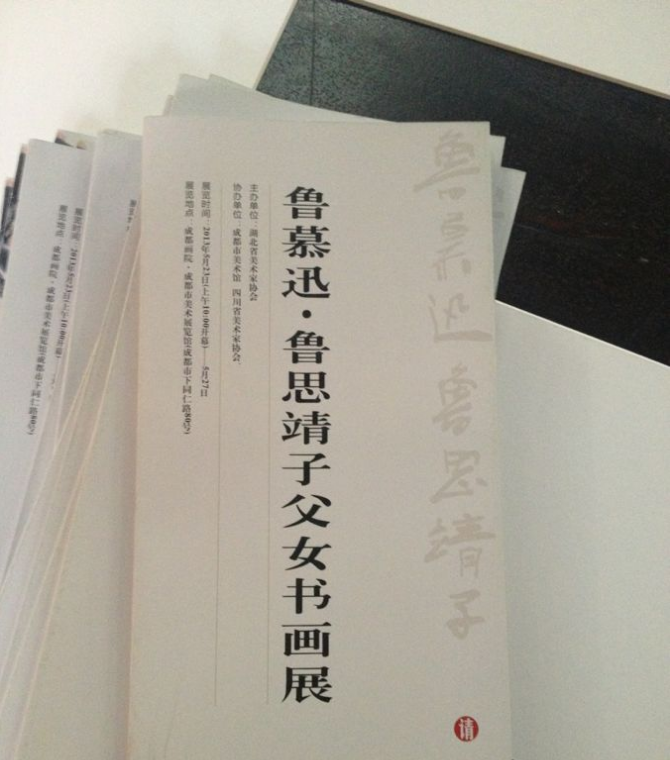 鲁慕迅 鲁思靖子
鲁慕迅·鲁思靖子父女书画展
主办单位：湖北省美术家协会
协办单位：成都市美术馆 四川省美术家协会
展览时间：2013年5月23日(上午10:00开幕)——5月27日
展览地点：成都画院·成都市美术展览馆(成都市下同仁路80号)
请
展览时间：2013年5月23日(上午10:00开幕)
展览地点：成都画院·成都市美术展览馆(成都市下同仁路80号)